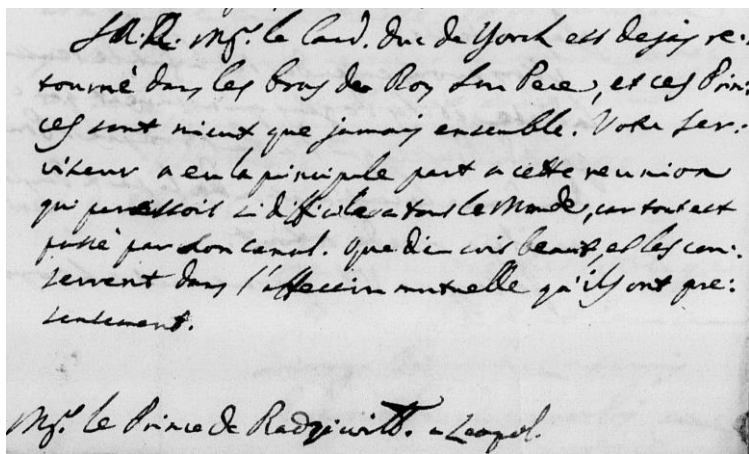 S.A.R. Mgr. le Card. Duc de Yorck est dejaj re:
tourné dans les bras du Roy son Pere, et ces Prin:
ces sont mieux que jamais ensemble. Votre ser:
viteur a eu la principale part a cette reunion
qui paressoit si difficile a tout le Monde, car tout est
passé par son canal. que dieu soit beni, et les con:
servent dans l'affection mutuelle qu'ils ont pre:
sentement.
Mgr. le Prince de Radziwill. a Leopol.